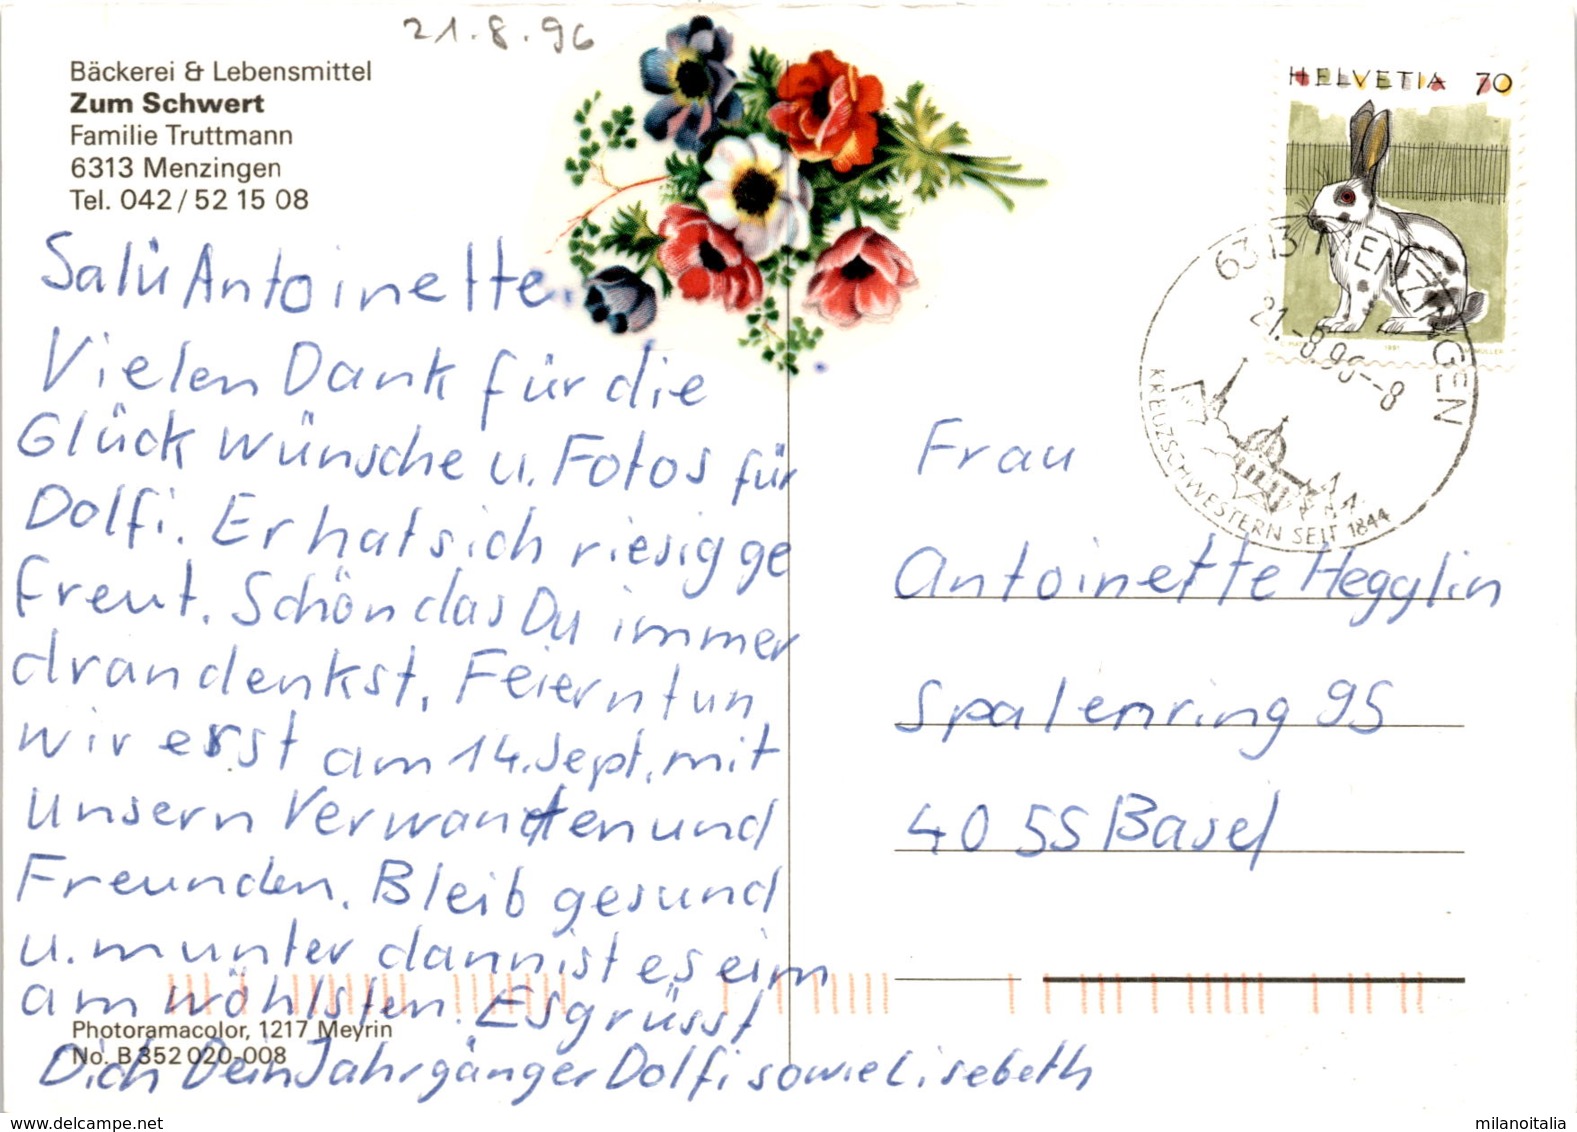 21.8.96
Bäckerei & Lebensmittel
Zum Schwert
Familie Truttmann
6313 Menzingen
Tel. 042/52 15 08
Salü Antoinette.
Vielen Dank für die
Glückwünsche u. Fotos für
Dolfi. Er hat sich riesig ge
freut. Schön das Du immer
drandenkst. Feiern tun
wir erst am 14. Sept. mit
unsern Verwandten und
Freunden. Bleib gesund
u. munter dann ist es eim
am wöhlsten. Es grüsst
Dich Dein Jahrgänger Dolfi sowie Lisebeth
Photoramacolor, 1217 Meyrin
No. B 352 020-008
HELVETIA 70
1991
6313 MENZINGEN
21.-8.96--8
KREUZSCHWESTERN SEIT 1844
Frau
Antoinette Hegglin
Spalenring 95
4055 Basel
www.delcampe.net
milanoitalia